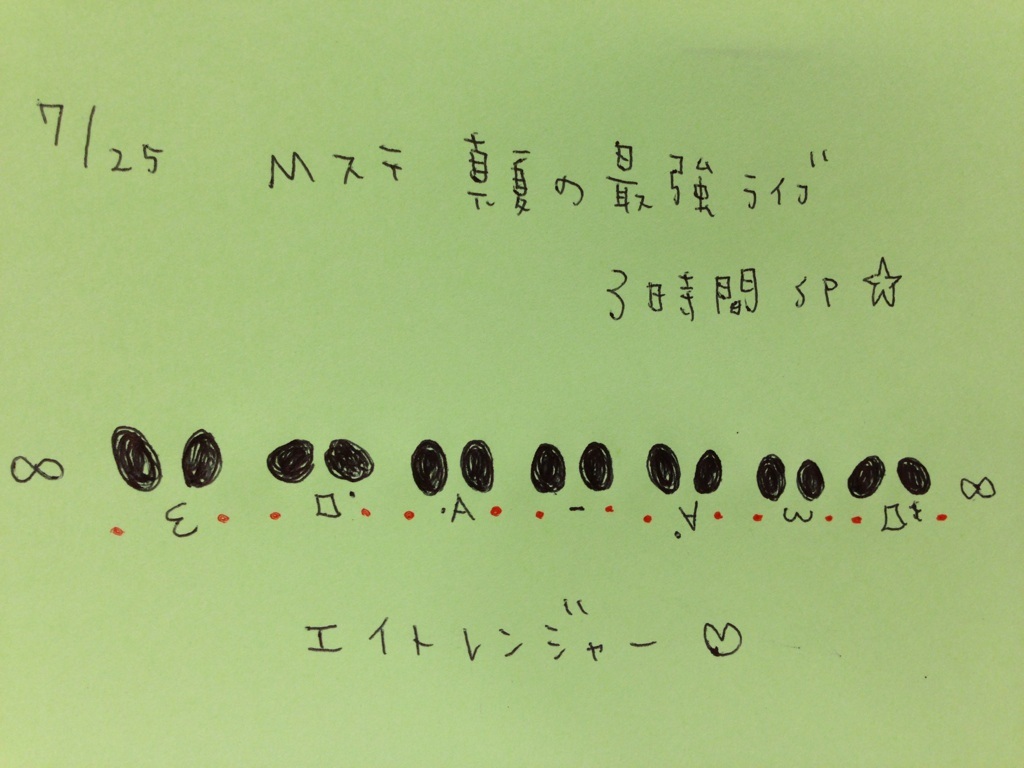 7/25 Mステ 真夏の最強ライブ
3時間SP☆
∞ ∞
エイトレンジャー♡